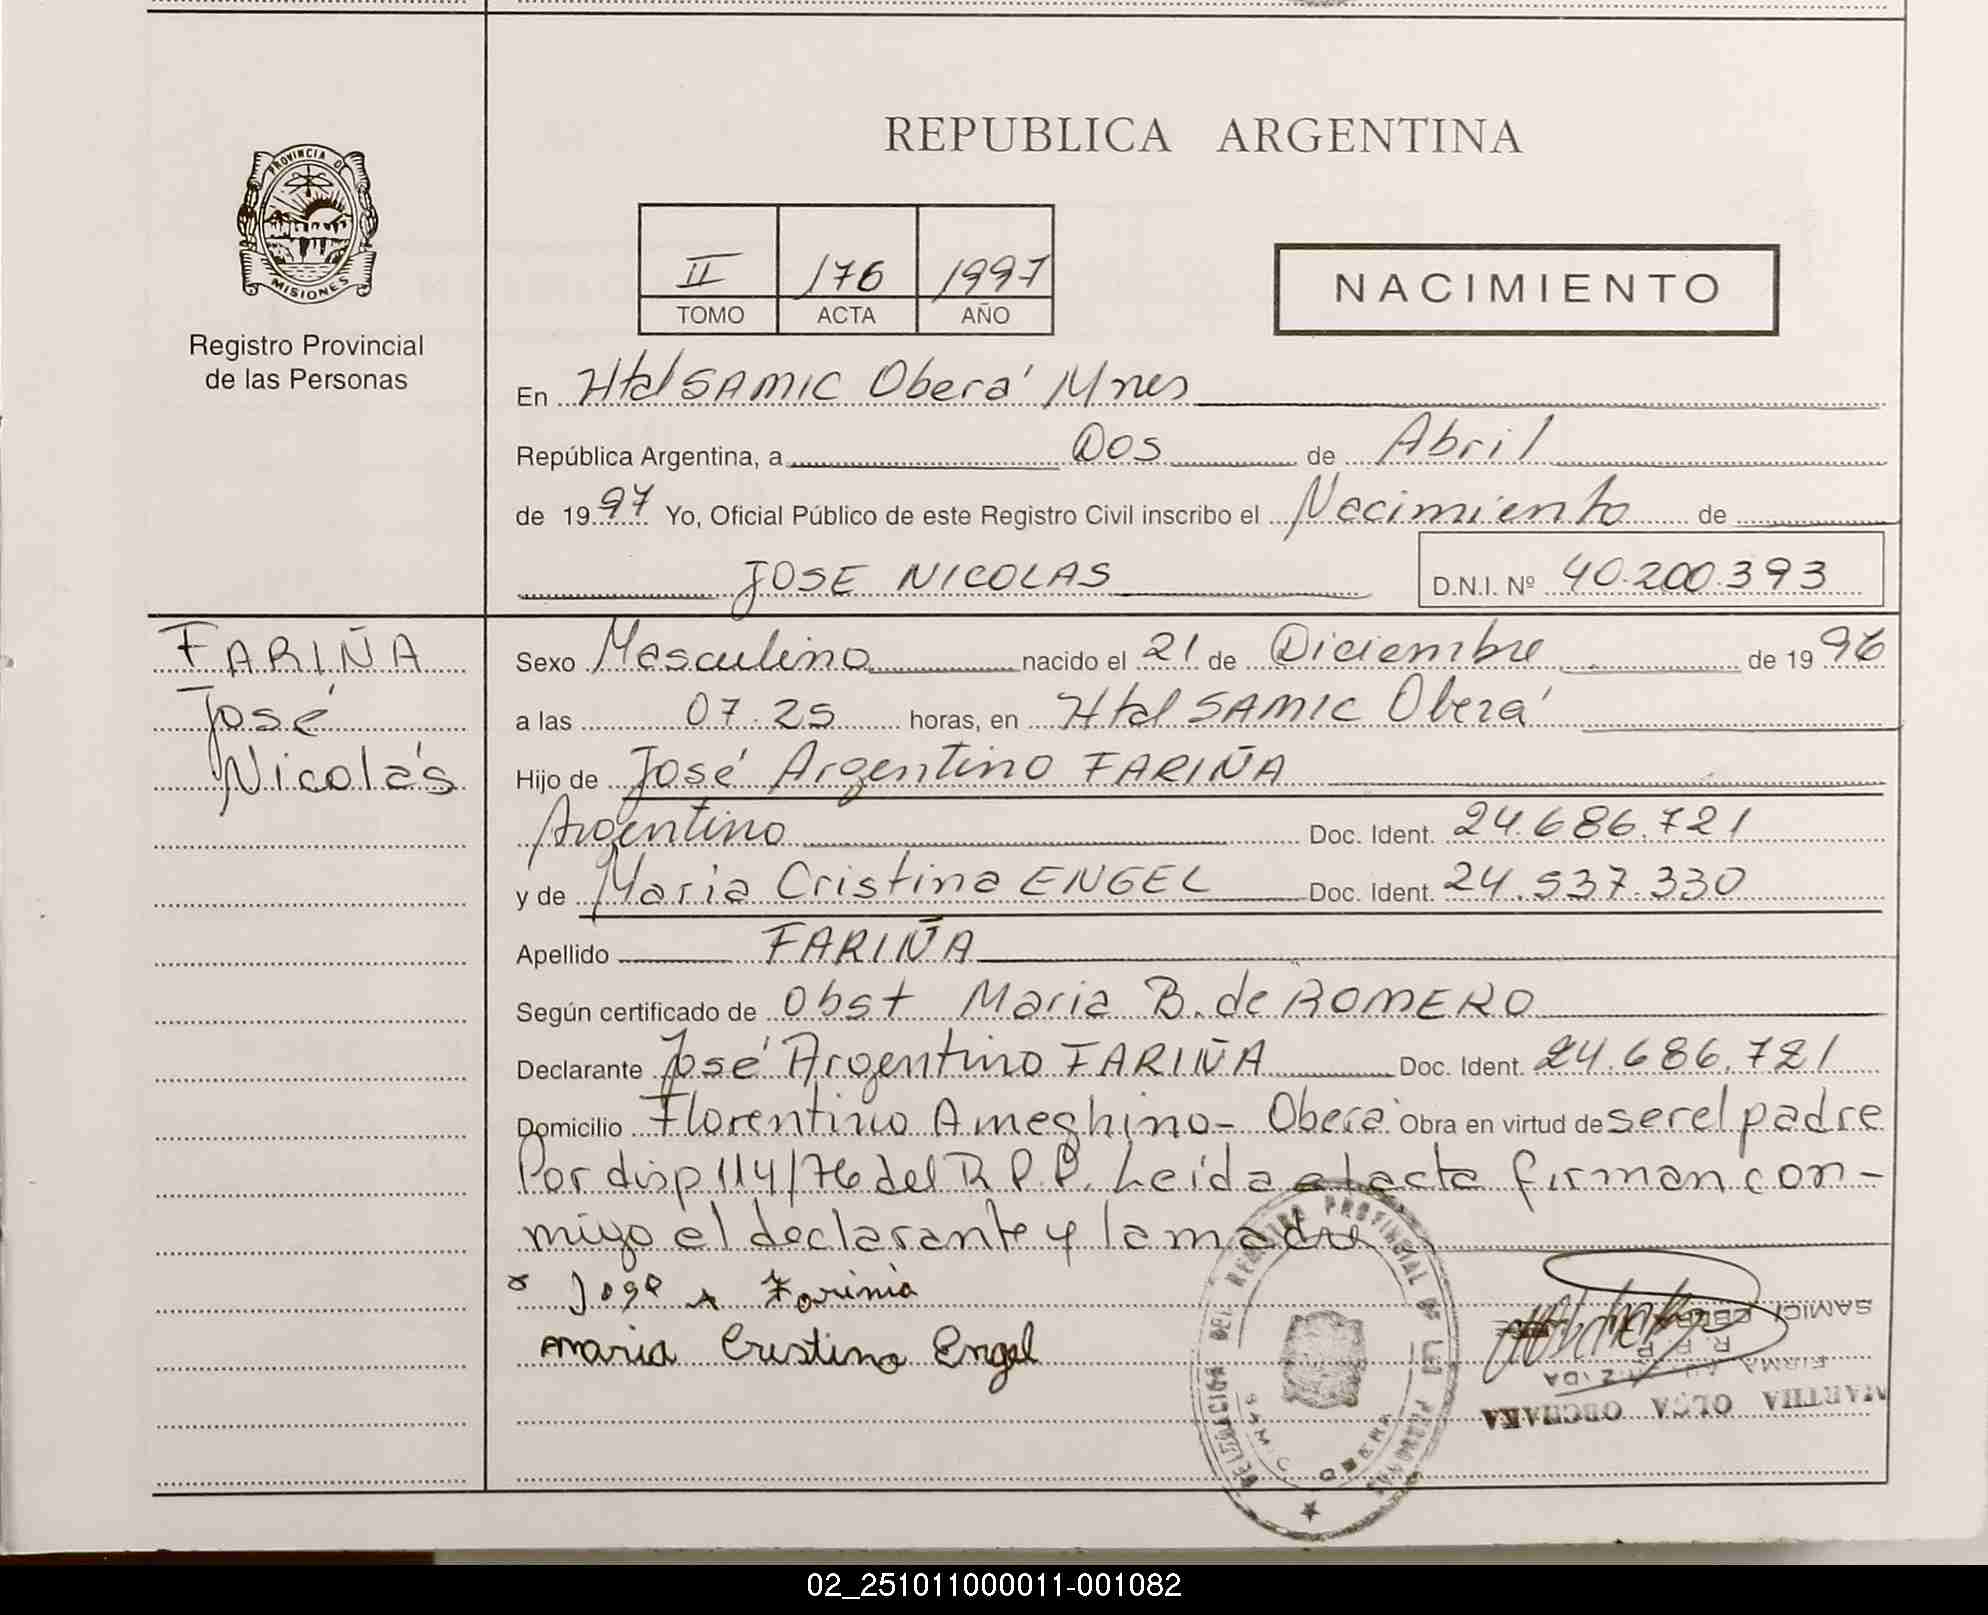 REPUBLICA ARGENTINA
PROVINCIA DE
MISIONES
Registro Provincial
de las Personas
II 176 1997
TOMO ACTA AÑO
NACIMIENTO
En Htal SAMIC Oberá Mnes
República Argentina, a Dos de Abril
de 1997 Yo, Oficial Público de este Registro Civil inscribo el Nacimiento de
JOSE NICOLAS D.N.I. Nº 40.200.393
FARIÑA
José
Nicolás
Sexo Masculino nacido el 21 de Diciembre de 1996
a las 07.25 horas, en Htal SAMIC Oberá
Hijo de José Argentino FARIÑA
Argentino Doc. Ident. 24.686.721
y de Maria Cristina ENGEL Doc. Ident. 24.537.330
Apellido FARIÑA
Según certificado de Obst Maria B. de ROMERO
Declarante José Argentino FARIÑA Doc. Ident. 24.686.721
Domicilio Florentino Ameghino - Oberá Obra en virtud de ser el padre
Por disp 114/76 del R.P.P. Leida el acta firman con-
migo el declarante y la madre
x Jose A Farinia
Maria Cristina Engel
DELEGACION DEL REGISTRO PROVINCIAL DE LAS PERSONAS
SAMIC OBERA
MARTHA OLGA
FIRMA AUTORIZADA
R. P. P.
SAMIC OBERA
02_251011000011-001082